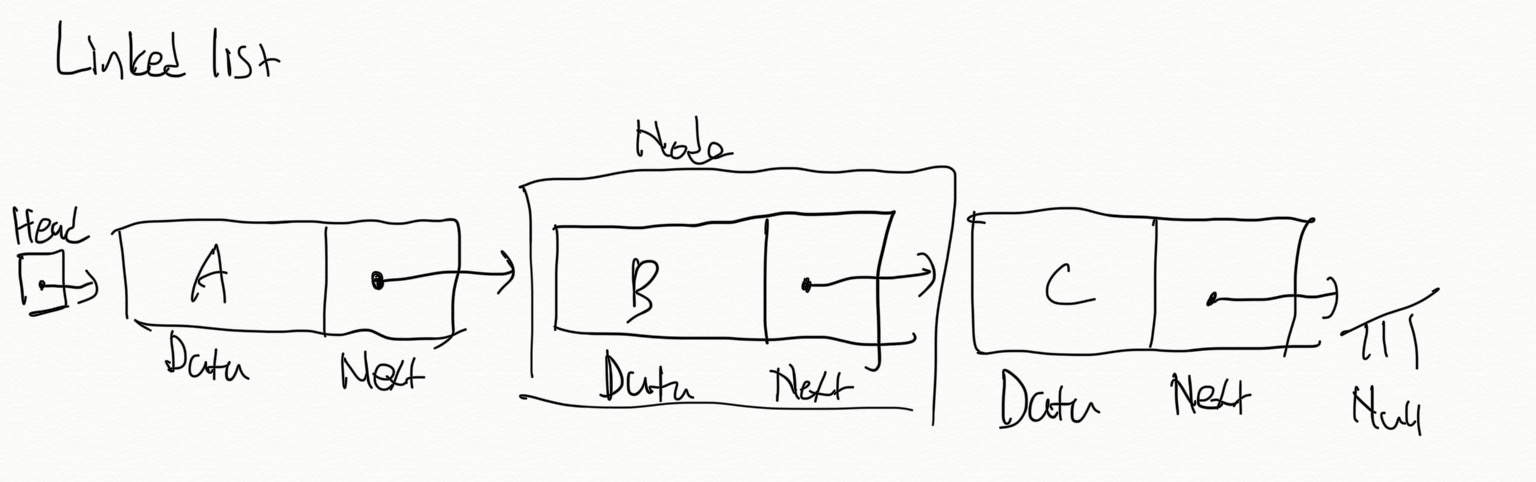 Linked list
Node
Head
A
B
C
Data
Next
Data
Next
Data
Next
Null